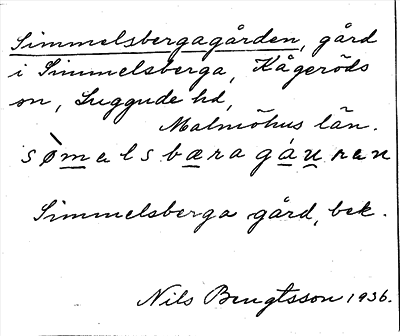 Simmelsbergagården, gård
i Simmelsberga, Kågeröds
sn, Luggude hd,
Malmöhus län.
sø̀melsbæragáu̯ræn
Simmelsberga gård, bek.
Nils Bengtsson 1936.